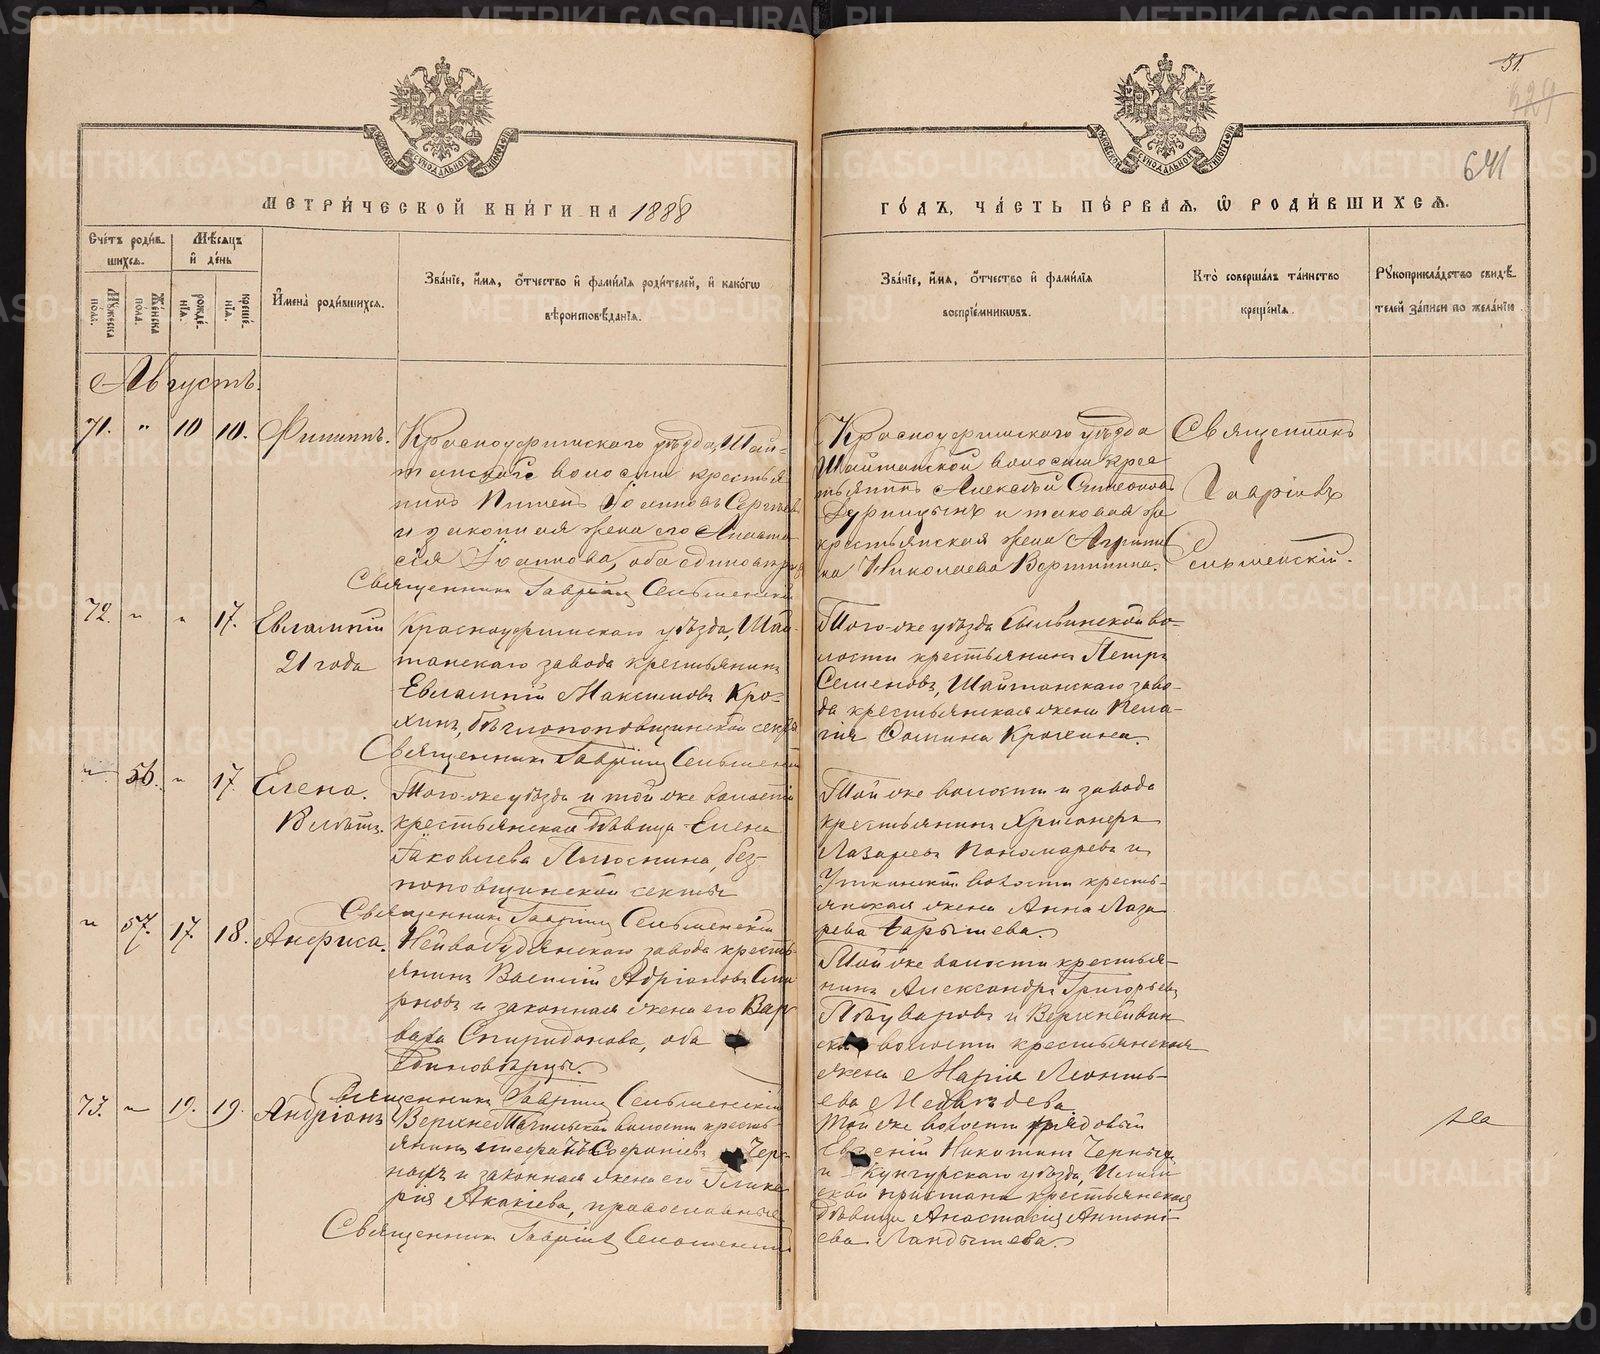 31.
641
МЕТРИ́ЧЕСКОЙ КНИ́ГИ НА 1888
ГО́ДЪ, ЧА́СТЬ ПЕ́РВАЯ, Ѡ РОДИ́ВШИХСЯ.
Сче́тъ роди́в-
шихся.
Мѣ́сяцъ
и҆ де́нь
Мꙋ́жеска пола̀.
Же́нска пола̀.
рожде́-
нїѧ.
креще́-
нїѧ.
И҆́мена̀ роди́вшихся.
Зва́нїе, и҆́мя, ѻ҆́тчество и҆ фами́лїѧ роди́телей, и҆ како́гѡ
вѣроисповѣ́данїѧ.
Зва́нїе, и҆́мя, ѻ҆́тчество и҆ фами́лїѧ
воспрїе́мникѡвъ.
Кто̀ соверша́лъ та́инство
креще́нїѧ.
Рꙋкоприкла́дство свидѣ́-
телей за́писи по жела́нїю.
Августъ.
71. " 10 10. Филиппъ.
Красноуфимскаго уѣзда, Шай-
танскаго волости крестья
нинъ Пимен Іоанновъ Сергѣевъ
и законная жена его Анаста
сія Іоаннова, оба единовѣрцы
Священникъ Гавріилъ Сельменскій
Красноуфимскаго уѣзда
Шайтанской волости крес
тьянинъ Алексѣй Симеоновъ
и таковая же
крестьянская жена Агрипи
на Николаева Вершинина.
Священникъ
Гавріилъ
Сельменскій.
72. " " 17. Евлампій
21 года
Красноуфимскаго уѣзда, Шай-
танскаго завода крестьянинъ
Евлампій Максимовъ Кро-
хинъ, бѣглопоповщинской секты
Священникъ Гавріилъ Сельменскій
Того-же уѣзда Сылвинской во-
лости крестьянинъ Петръ
Семеновъ, Шайтанскаго заво-
да крестьянская жена Пела-
гія Фомина Крохина.
" 56. " 17. Елена.
18 лѣтъ.
Того-же уѣзда и той же волости
крестьянская дѣвица Елена
Іаковлева Плюснина, без-
поповщинской секты
Священникъ Гавріилъ Сельменскій
Той же волости и завода
крестьянинъ
Лазаревъ Пономаревъ и
Уткинской волости кресть-
янская жена Анна Лаза
рева Барышева.
" 57. 17. 18. Анфиса.
Нейво-Рудянскаго завода кресть-
янинъ Василій Адріановъ Сми
рновъ и законная жена его Вар
вара Спиридонова, оба
единовѣрцы.
Священникъ Гавріилъ Сельменскій
Той же волости крестья-
нинъ Александръ Григорьевъ
Пѣтуваровъ и Верхнейвин
ской волости крестьянская
жена Марія Леонть-
ева Медвѣдева.
73. " 19. 19. Андріанъ
Верхне-Тагильской волости кресть-
янинъ Софоніевъ Чер-
ныхъ и законная жена его Глике
рія Акакіева, православные
Священникъ Гавріилъ Сельменскій
Той же волости рядовой
Евгеній Никитинъ Черныхъ
и Кунгурскаго уѣзда, Илим
ской пристани крестьянская
дѣвица Анастасія Антоні-
ева Ландышева.